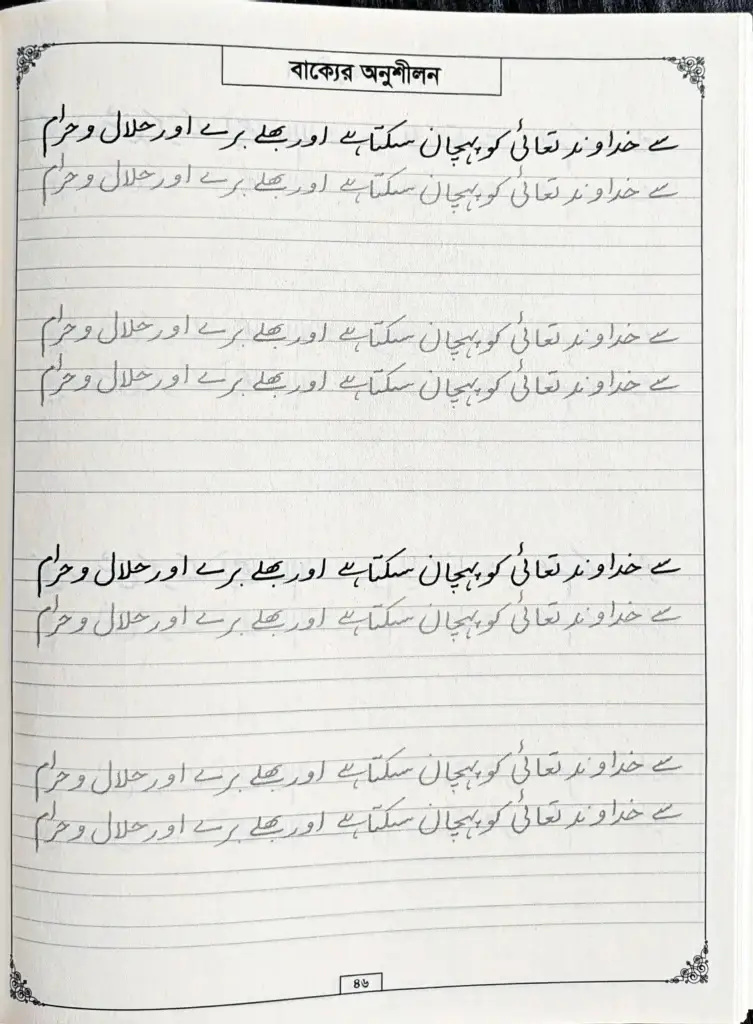 বাক্যের অনুশীলন
سے خداوند تعالیٰ کو پہچان سکتا ہے اور بھلے برے اور حلال و حرام
سے خداوند تعالیٰ کو پہچان سکتا ہے اور بھلے برے اور حلال و حرام
سے خداوند تعالیٰ کو پہچان سکتا ہے اور بھلے برے اور حلال و حرام
سے خداوند تعالیٰ کو پہچان سکتا ہے اور بھلے برے اور حلال و حرام
سے خداوند تعالیٰ کو پہچان سکتا ہے اور بھلے برے اور حلال و حرام
سے خداوند تعالیٰ کو پہچان سکتا ہے اور بھلے برے اور حلال و حرام
سے خداوند تعالیٰ کو پہچان سکتا ہے اور بھلے برے اور حلال و حرام
سے خداوند تعالیٰ کو پہچان سکتا ہے اور بھلے برے اور حلال و حرام
৪৬